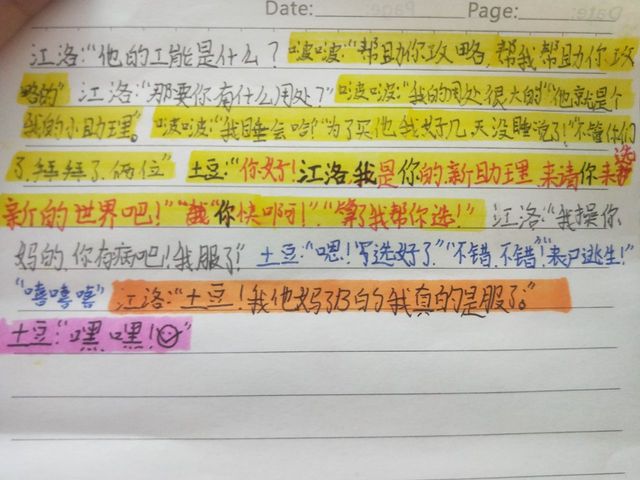 Date: Page:
江洛:“他的工能是什么?啵啵:“帮助你攻略,帮我帮助你攻
略的” 江洛:“那要你有什么用处?”啵啵:“我的用处很大的”“他就是个
我的小助理。”啵啵:“我目垂会哈”“为了买他我好几天没睡说了!”“不管你们
了,拜拜了俩位” 土豆:“你好!江洛,我是你的新助理,来请你来选
新的世界吧!”“诶你快吖!”“算了我帮你选!” 江洛:“我操你
妈的,你有病吧!我服了” 土豆:“嗯!选好了”“不错,不错”“表尸逃生!”
“嘻嘻嘻” 江洛:“土豆!我他妈了B的我真的是服了。”
土豆:“嘿,嘿!”